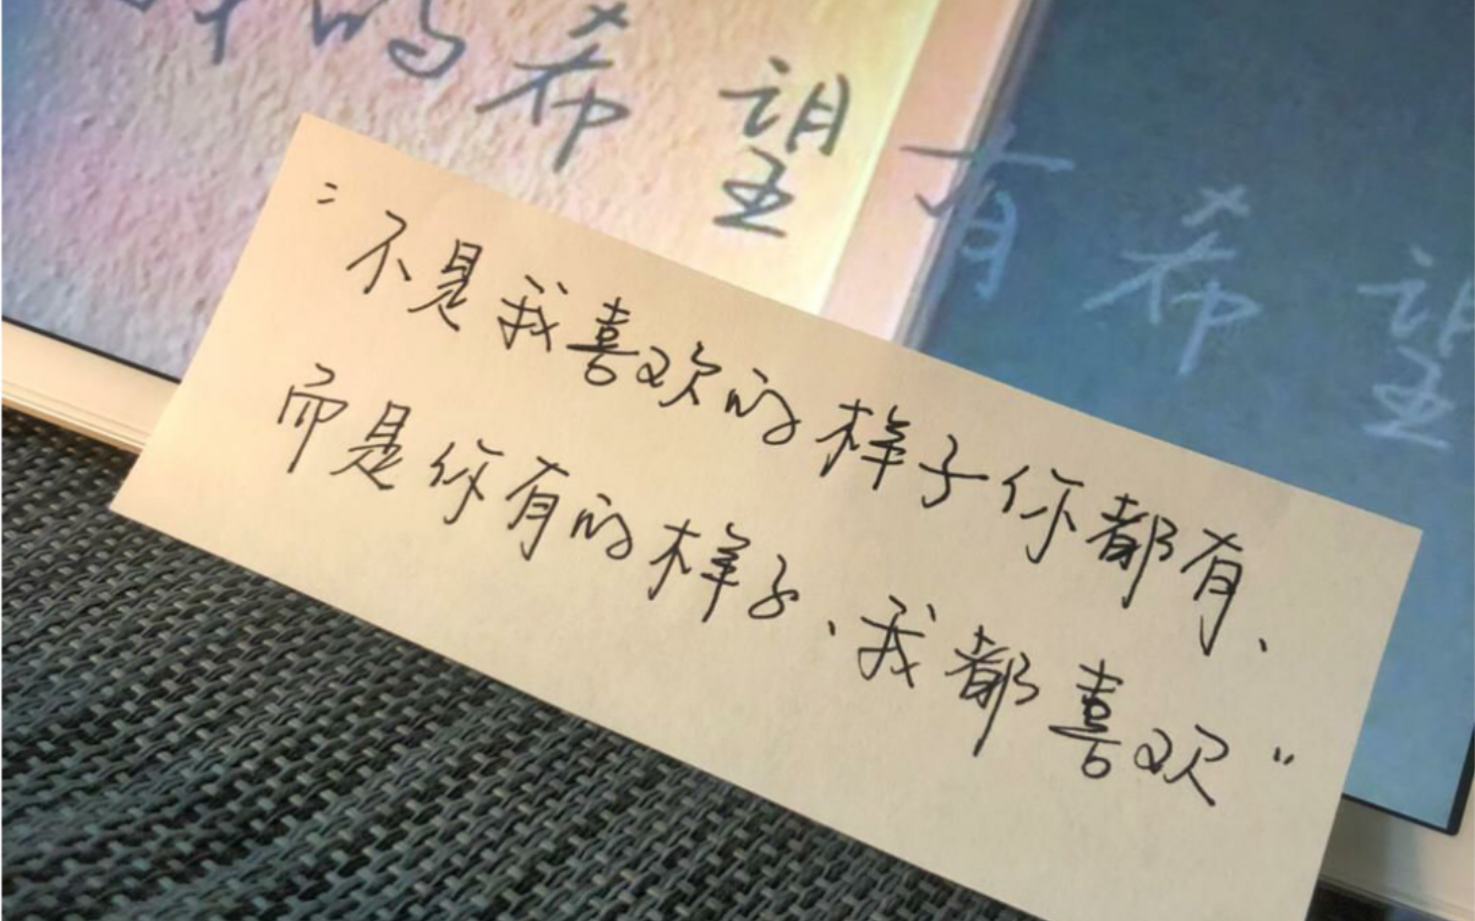 的希望有希望
"不是我喜欢的样子你都有、
而是你有的样子、我都喜欢"